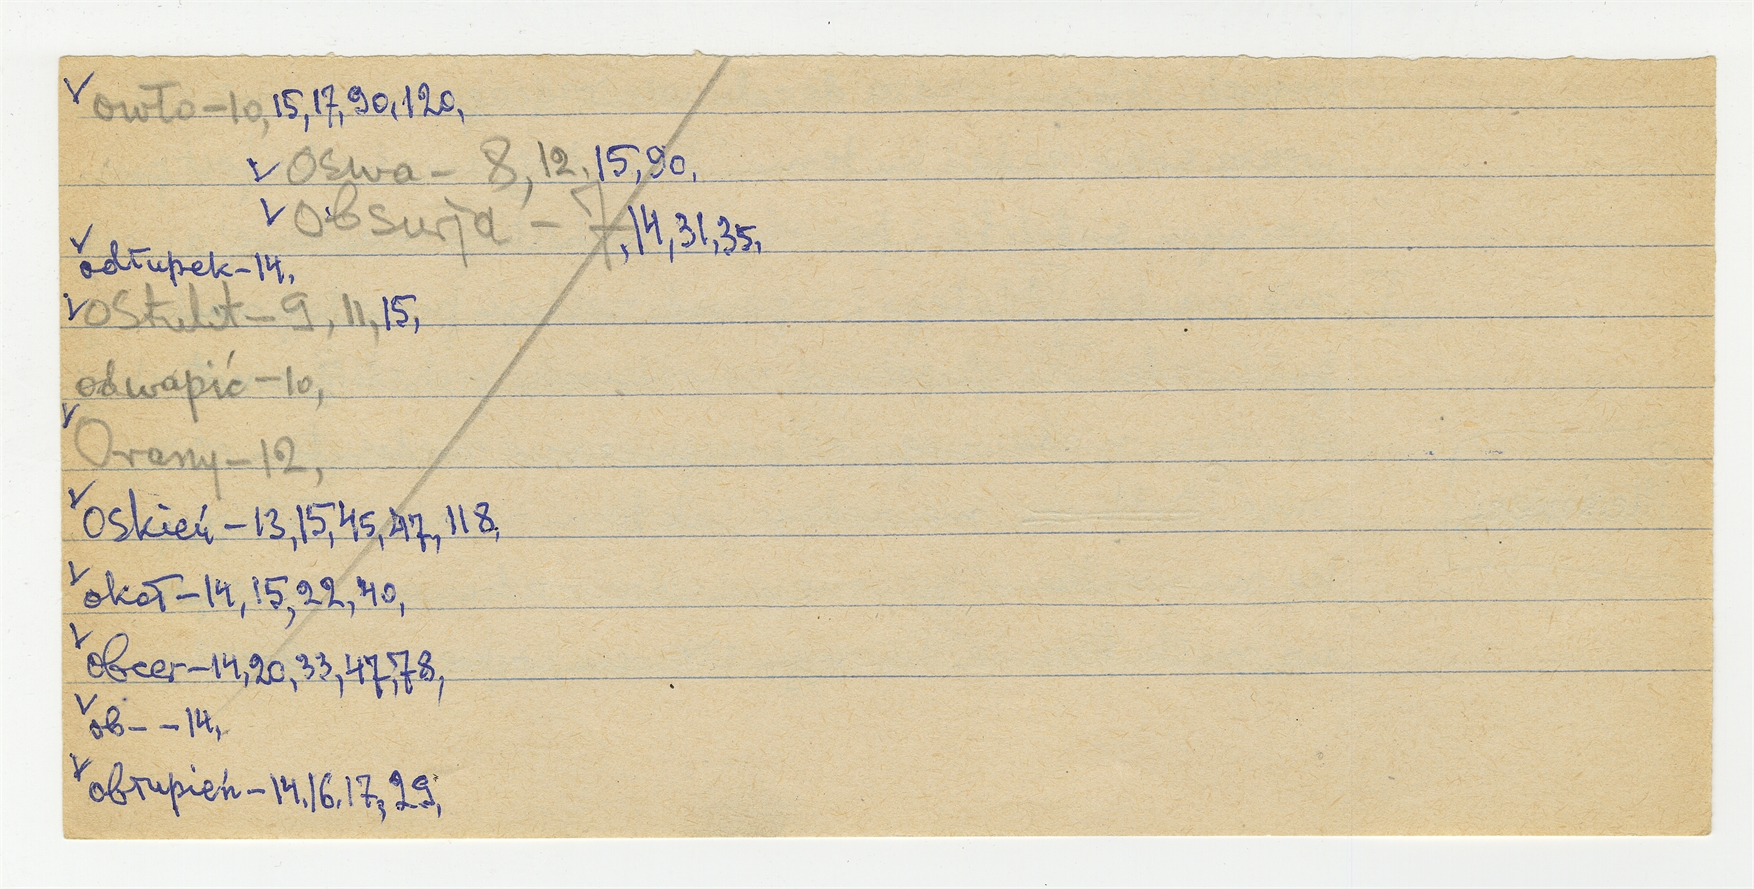 ✓ owło-10, 15, 17, 90, 120,
✓ Oswa - 8, 12, 15, 90,
✓ Obsurja - 7, 14, 31, 35,
✓ odłupek-14,
✓ 9, 11, 15,
odwapić-10,
✓ Orany-12,
✓ Oskień-13, 15, 45, 47, 118,
✓ okoł-14, 15, 22, 40,
✓ obcer-14, 20, 33, 47, 78,
✓ ob- -14,
✓ obłupień-14, 16, 17, 29,